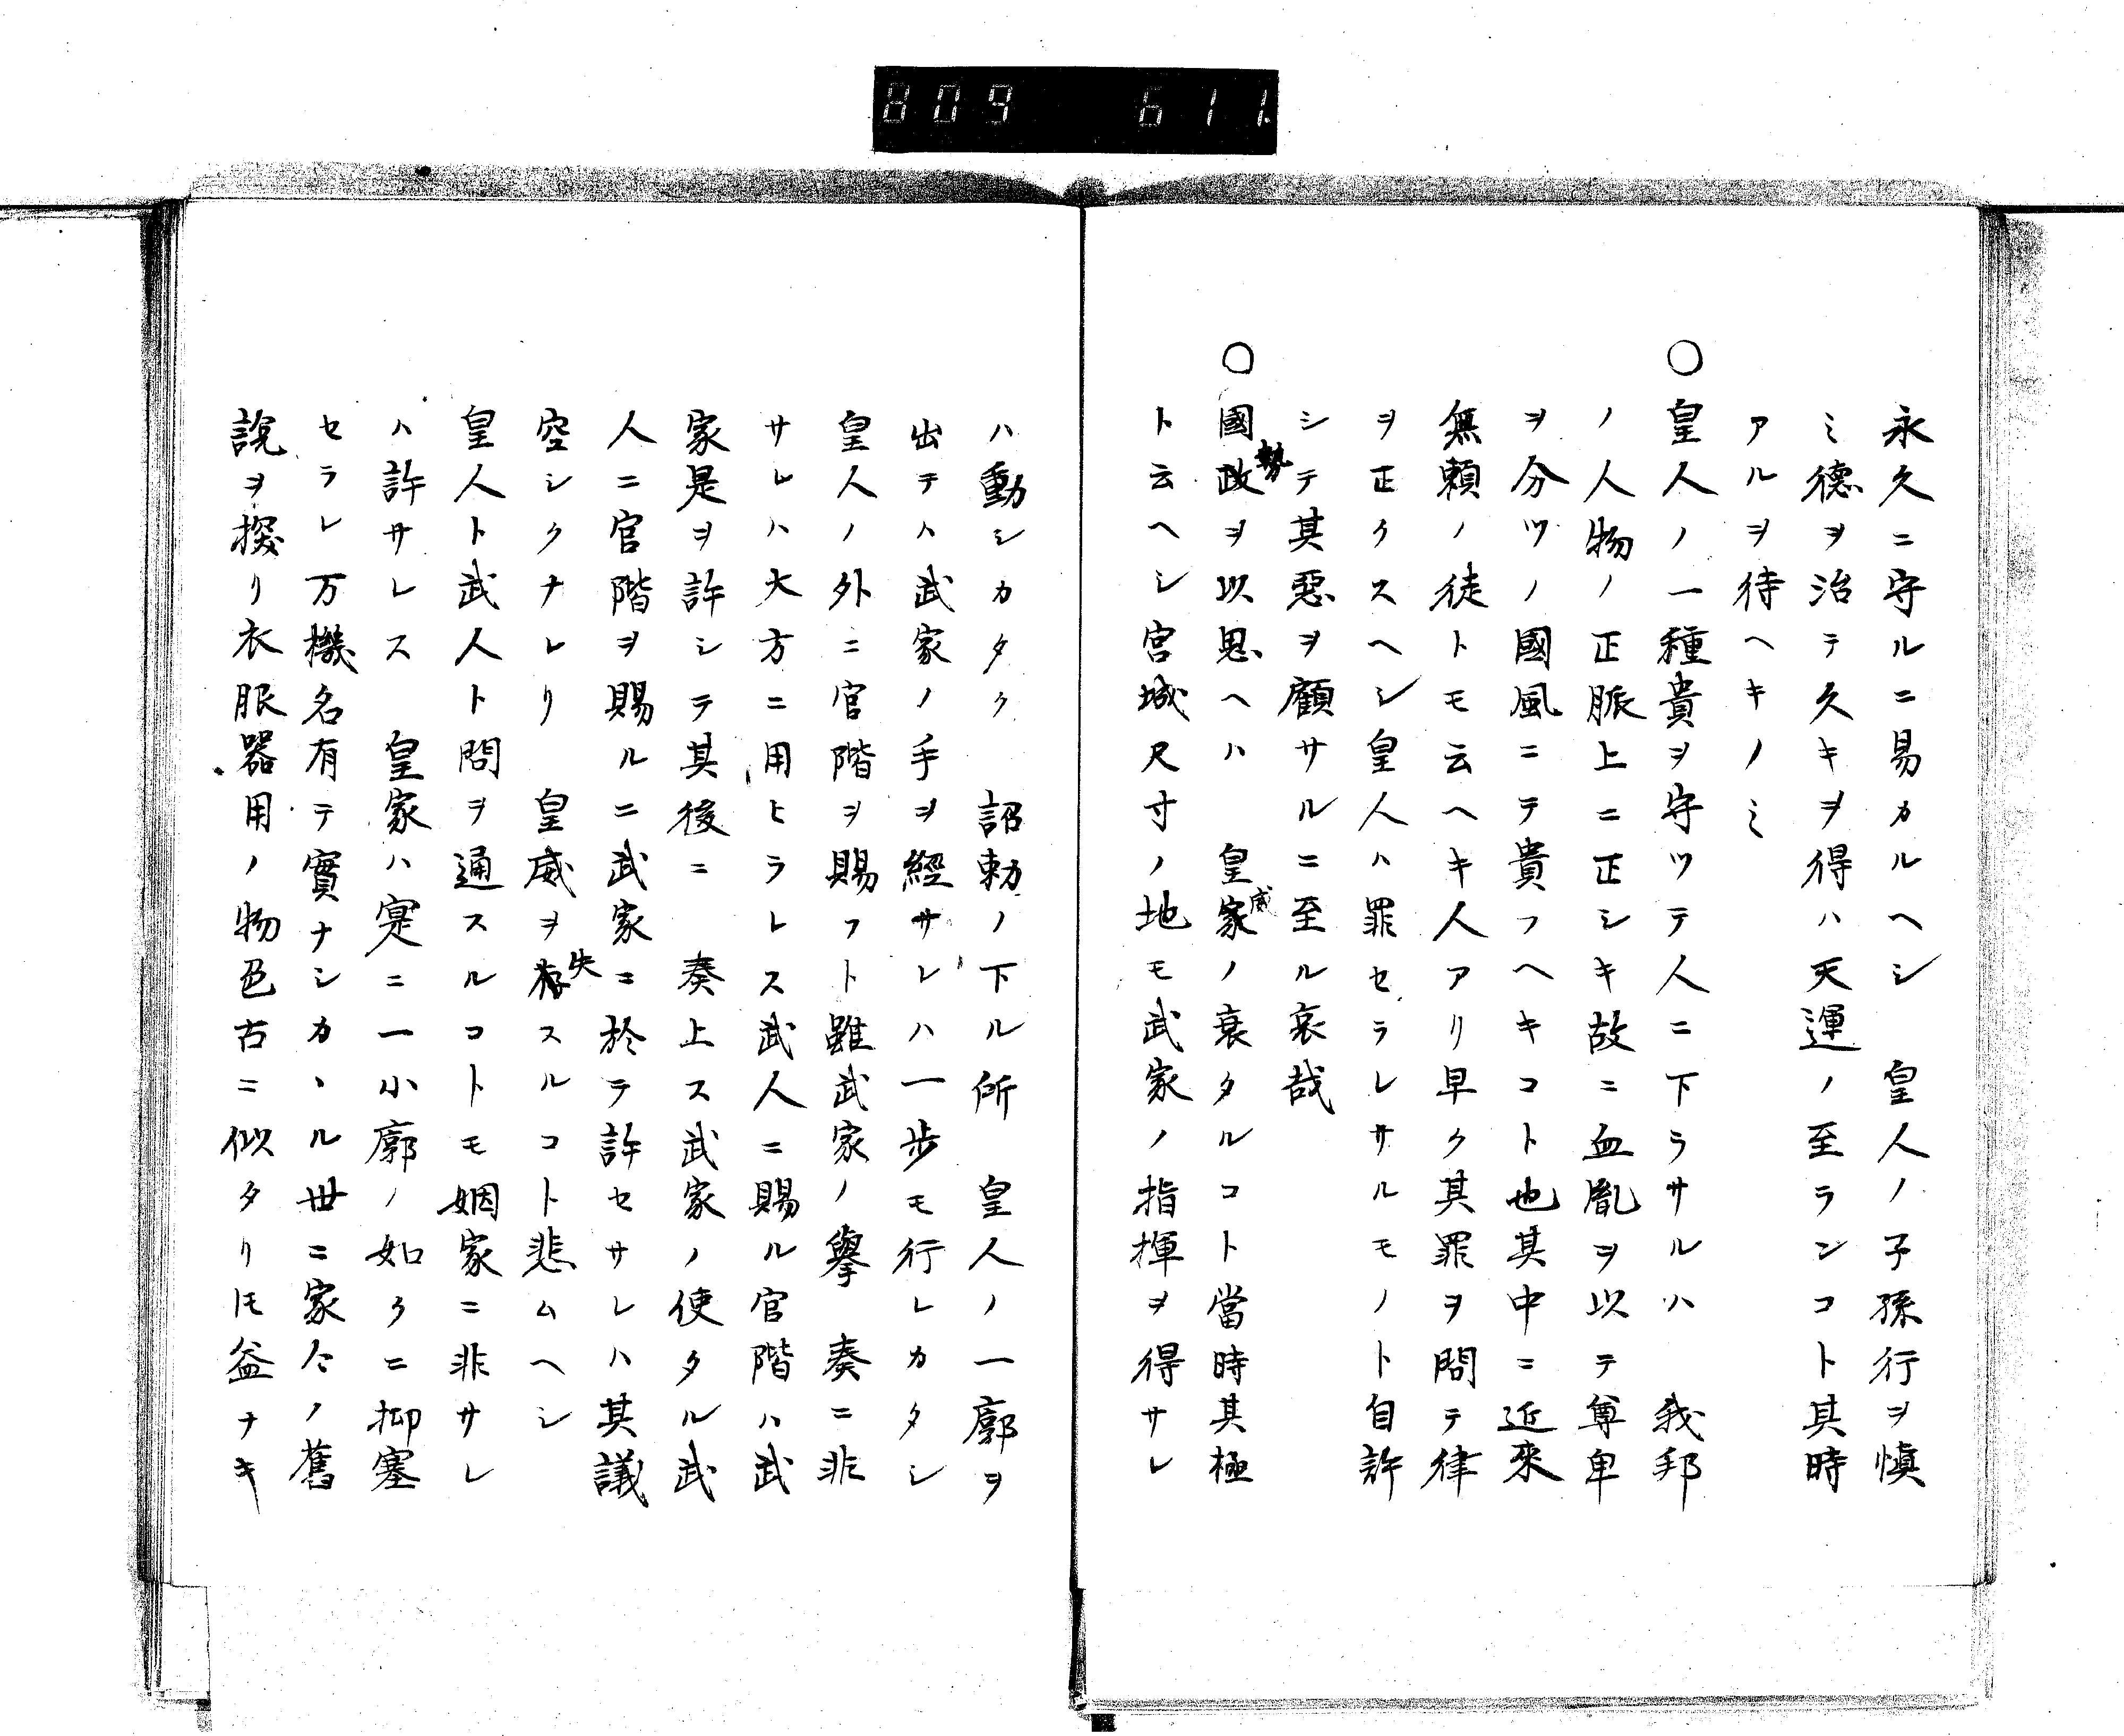 809 611
永久ニ守ルニ易カルヘシ　皇人ノ子孫行ヲ愼
ミ德ヲ治テ久キヲ得ハ天運ノ至ランコト其時
アルヲ待ヘキノミ
〇皇人ノ一種貴ヲ守ツテ人ニ下ラサルハ　我邦
ノ人物ノ正脈上ニ正シキ故ニ血胤ヲ以テ尊卑
ヲ分ツノ國風ニテ貴フヘキコト也其中ニ近來
無頼ノ徒トモ云ヘキ人アリ早ク其罪ヲ問テ律
ヲ正クスヘシ皇人ハ罪セラレサルモノト自許
シテ其惡ヲ顧サルニ至ル哀哉
勢
〇國政ヲ以思ヘハ　皇家ノ衰タルコト當時其極
威
ト云ヘシ宮城尺寸ノ地モ武家ノ指揮ヲ得サレ
ハ動シカタク　詔勅ノ下ル所　皇人ノ一廓ヲ
出テハ武家ノ手ヲ經サレハ一歩モ行レカタシ
皇人ノ外ニ官階ヲ賜フト雖武家ノ擧　奏ニ非
サレハ大方ニ用ヒラレス武人ニ賜ル官階ハ武
家是ヲ許シテ其後ニ　奏上ス武家ノ使タル武
人ニ官階ヲ賜ルニ武家ニ於テ許セサレハ其議
失
空シクナレリ　皇威ヲスルコト悲ムヘシ
皇人ト武人ト問ヲ通スルコトモ姻家ニ非サレ
ハ許サレス　皇家ハ寔ニ一小廓ノ如クニ抑塞
セラレ万機名有テ實ナシカヽル世ニ家々ノ舊
說ヲ探リ衣服器用ノ物色古ニ似タリトモ益ナキ